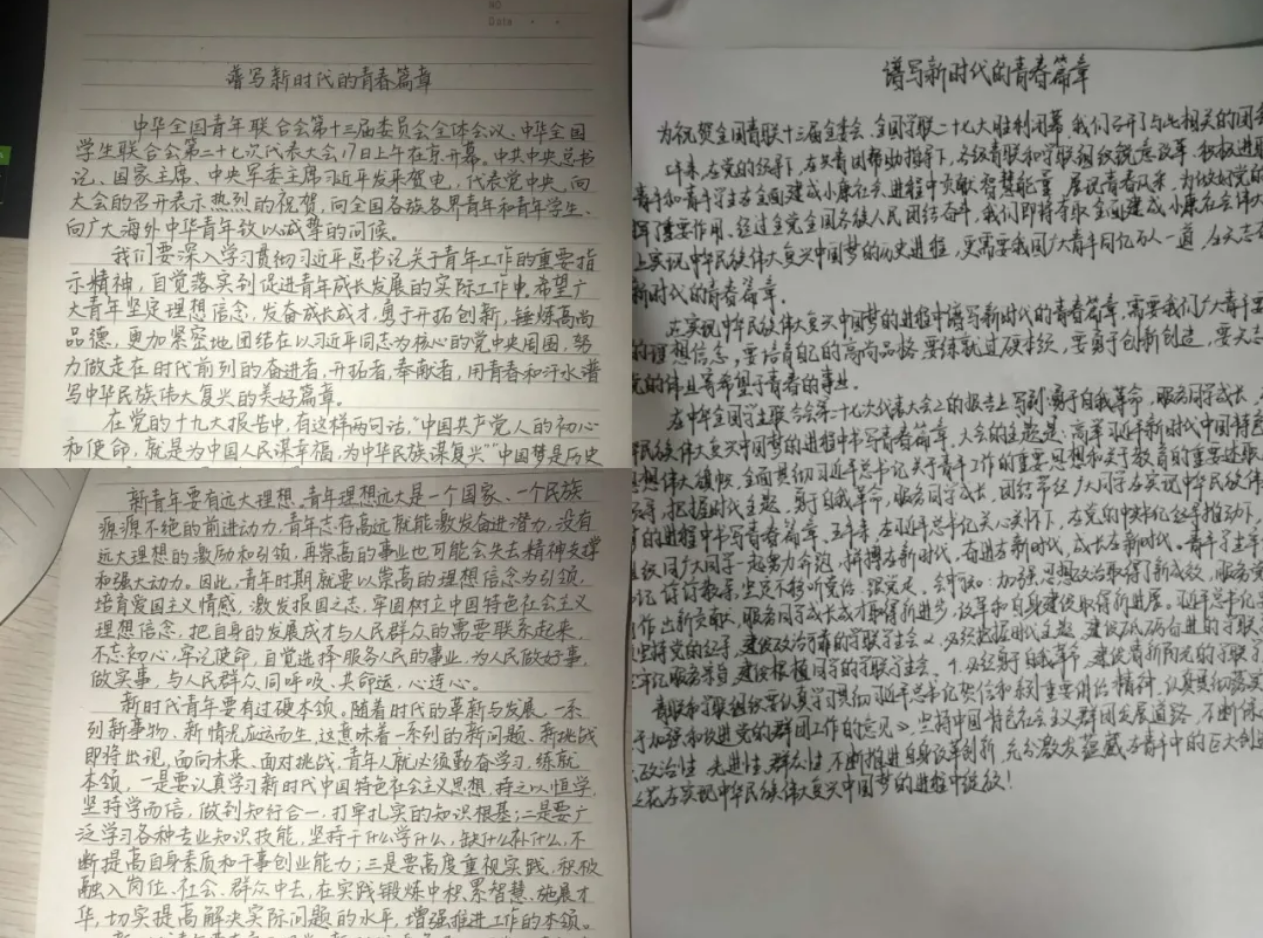 NO
Date
谱写新时代的青春篇章
中华全国青年联合会第十三届委员会全体会议、中华全国
学生联合会第二十七次代表大会17日上午在京开幕。中共中央总书
记、国家主席、中央军委主席习近平发来贺电,代表党中央,向
大会的召开表示热烈的祝贺,向全国各族各界青年和青年学生、
向广大海外中华青年致以诚挚的问候。
我们要深入学习贯彻习近平总书记关于青年工作的重要指
示精神,自觉落实到促进青年成长发展的实际工作中。希望广
大青年坚定理想信念,发奋成长成才,勇于开拓创新,锤炼高尚
品德,更加紧密地团结在以习近平同志为核心的党中央周围,努
力做走在时代前列的奋进者,开拓者,奉献者,用青春和汗水谱
写中华民族伟大复兴的美好篇章。
在党的十九大报告中,有这样两句话,“中国共产党人的初心
和使命,就是为中国人民谋幸福,为中华民族谋复兴”“中国梦是历史
新青年要有远大理想。青年理想远大是一个国家、一个民族
源源不绝的前进动力,青年志存高远就能激发奋进潜力,没有
远大理想的激励和引领,再崇高的事业也可能会失去精神支撑
和强大动力。因此,青年时期就要以崇高的理想信念为引领,
培育爱国主义情感,激发报国之志,牢固树立中国特色社会主义
理想信念,把自身的发展成才与人民群众的需要联系起来,
不忘初心,牢记使命,自觉选择服务人民的事业,为人民做好事,
做实事,与人民群众同呼吸、共命运,心连心。
新时代青年要有过硬本领。随着时代的革新与发展,一系
列新事物、新情况应运而生,这意味着一系列的新问题、新挑战
即将出现,面向未来、面对挑战,青年人就必须勤奋学习,练就
本领,一是要认真学习新时代中国特色社会主义思想,持之以恒学,
坚持学而信,做到知行合一,打牢扎实的知识根基;二是要广
泛学习各种专业知识技能,坚持干什么学什么,缺什么补什么,不
断提高自身素质和干事创业能力;三是要高度重视实践,积极
融入岗位、社会、群众中去,在实践锻炼中积累智慧、施展才
华,切实提高解决实际问题的水平,增强推进工作的本领。
谱写新时代的青春篇章
为祝贺全国青联十三届全委会、全国学联二十七大胜利闭幕,我们召开了与此相关的团会
年来,在党的领导下,在共青团帮助指导下,各级青联和学联组织锐意改革、积极进取
青年和青年学生在全面建成小康社会进程中贡献智慧能量、展现青春风采,为做好党的
挥了重要作用。经过全党全国各族人民团结奋斗,我们即将夺取全面建成小康社会伟大
上实现中华民族伟大复兴中国梦的历史进程,更需要我国广大青年同亿万人一道,
新时代的青春篇章。
在实现中华民族伟大复兴中国梦的进程中谱写新时代的青春篇章,需要我们广大青年要
的理想信念,要培育自己的高尚品格,要练就过硬本领,要勇于创新创造,要矢志
寄希望于青春的事业。
在中华全国学生联合会第二十七次代表大会上的报告上写到:勇于自我革命,服务同学成长,
民族伟大复兴中国梦的进程中书写青春篇章,大会的主题是:高举习近平新时代中国特色
思想伟大旗帜,全面贯彻习近平总书记关于青年工作的重要思想和关于教育的重要论述,
把握时代主题,勇于自我革命,服务同学成长,团结带领广大同学在实现中华民族伟
的进程中书写青春篇章。五年来,在习近平总书记关心关怀下,在党的中央书记处领导推动下,
组织同广大同学一起努力奔跑,拼搏在新时代,奋进在新时代,成长在新时代。青年学生牢
记谆谆教导,坚定不移听党话、跟党走。会中认为:加强思想政治取得了新成效,服务党
作出新贡献,服务同学成长成才取得新进步,改革和自身建设取得新进展。习近平总书记
坚持党的领导,建设政治可靠的学联学生会2、必须把握时代主题,建设砥砺奋进的学联
牢记服务宗旨,建设根植同学的学联学生会、4.必须勇于自我革命,建设着新向光的学联
青联和学联组织要认真学习贯彻习近平总书记贺信和系列重要讲话精神,认真贯彻落实
于加强和改进党的群团工作的意见》,坚持中国特色社会主义群团发展道路,不断保
政治性、先进性、群众性,不断推进自身改革创新,充分激发蕴藏在青年中的巨大创造
之花在实现中华民族伟大复兴中国梦的进程中绽放!